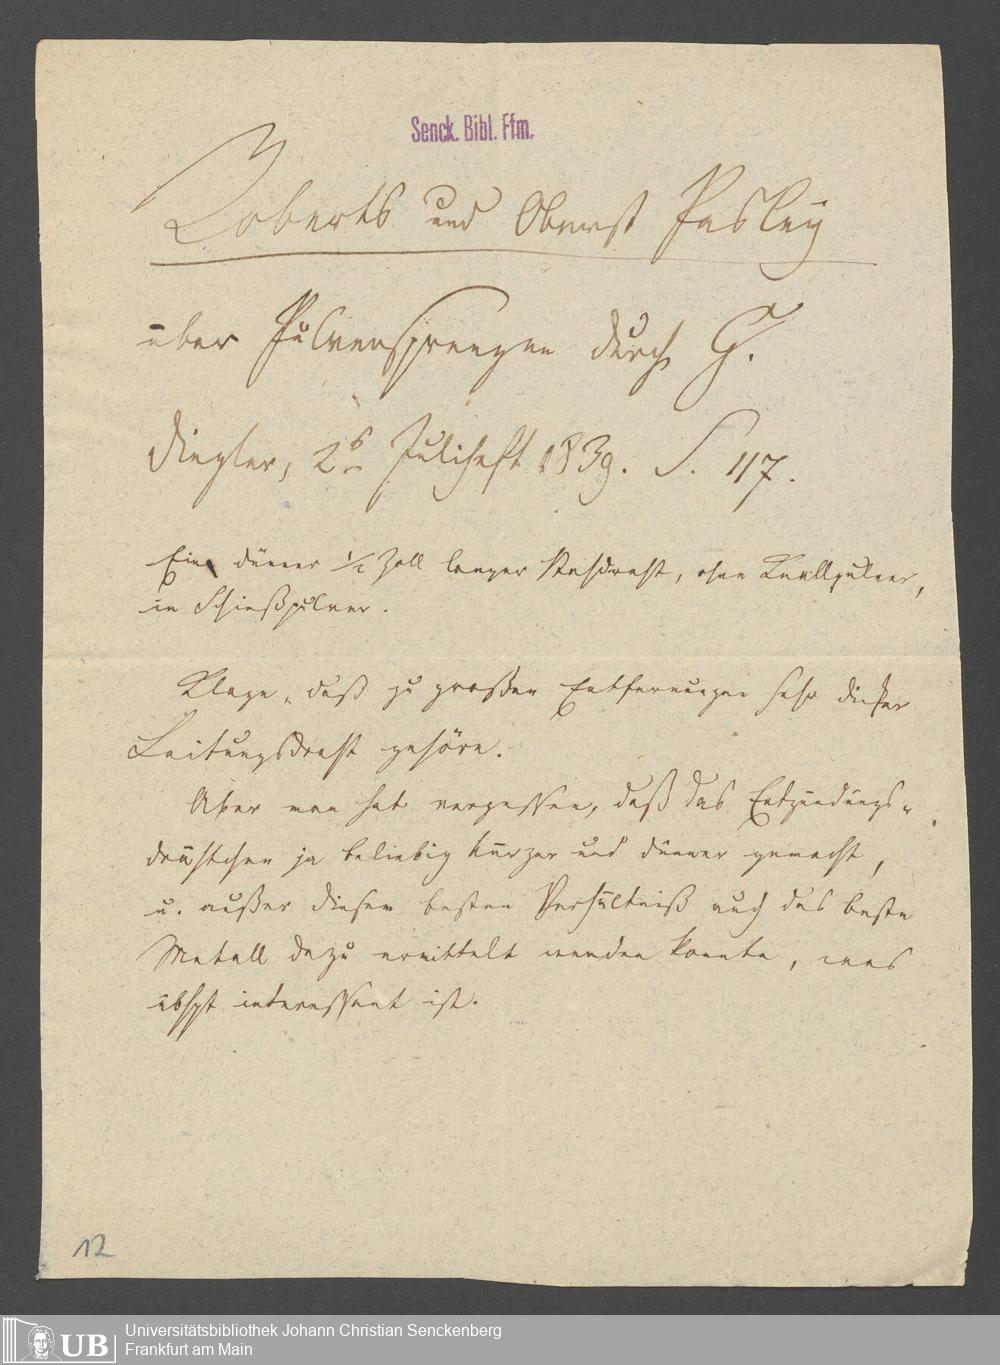 Senck. Bibl. Ffm.
Roberts und Oberst Pasley
über Pulversprengen durch G.
Dingler, 2s Juliheft 1839. S. 117.
Ein dünner 1/2 Zoll langer Stahldraht, ohne Knallpulver,
in Schießpulver.
Klage, daß zu großen Entfernungen sehr dicker
Leitungsdraht gehöre.
Aber man hat vergessen, daß das Entzündungs-
drähtchen ja beliebig kürzer und dünner gemacht,
u. außer diesem besten Verhältniß auch das beste
Metall dazu ermittelt werden konnte, was
übhpt interessant ist.
12
UB
Universitätsbibliothek Johann Christian Senckenberg
Frankfurt am Main